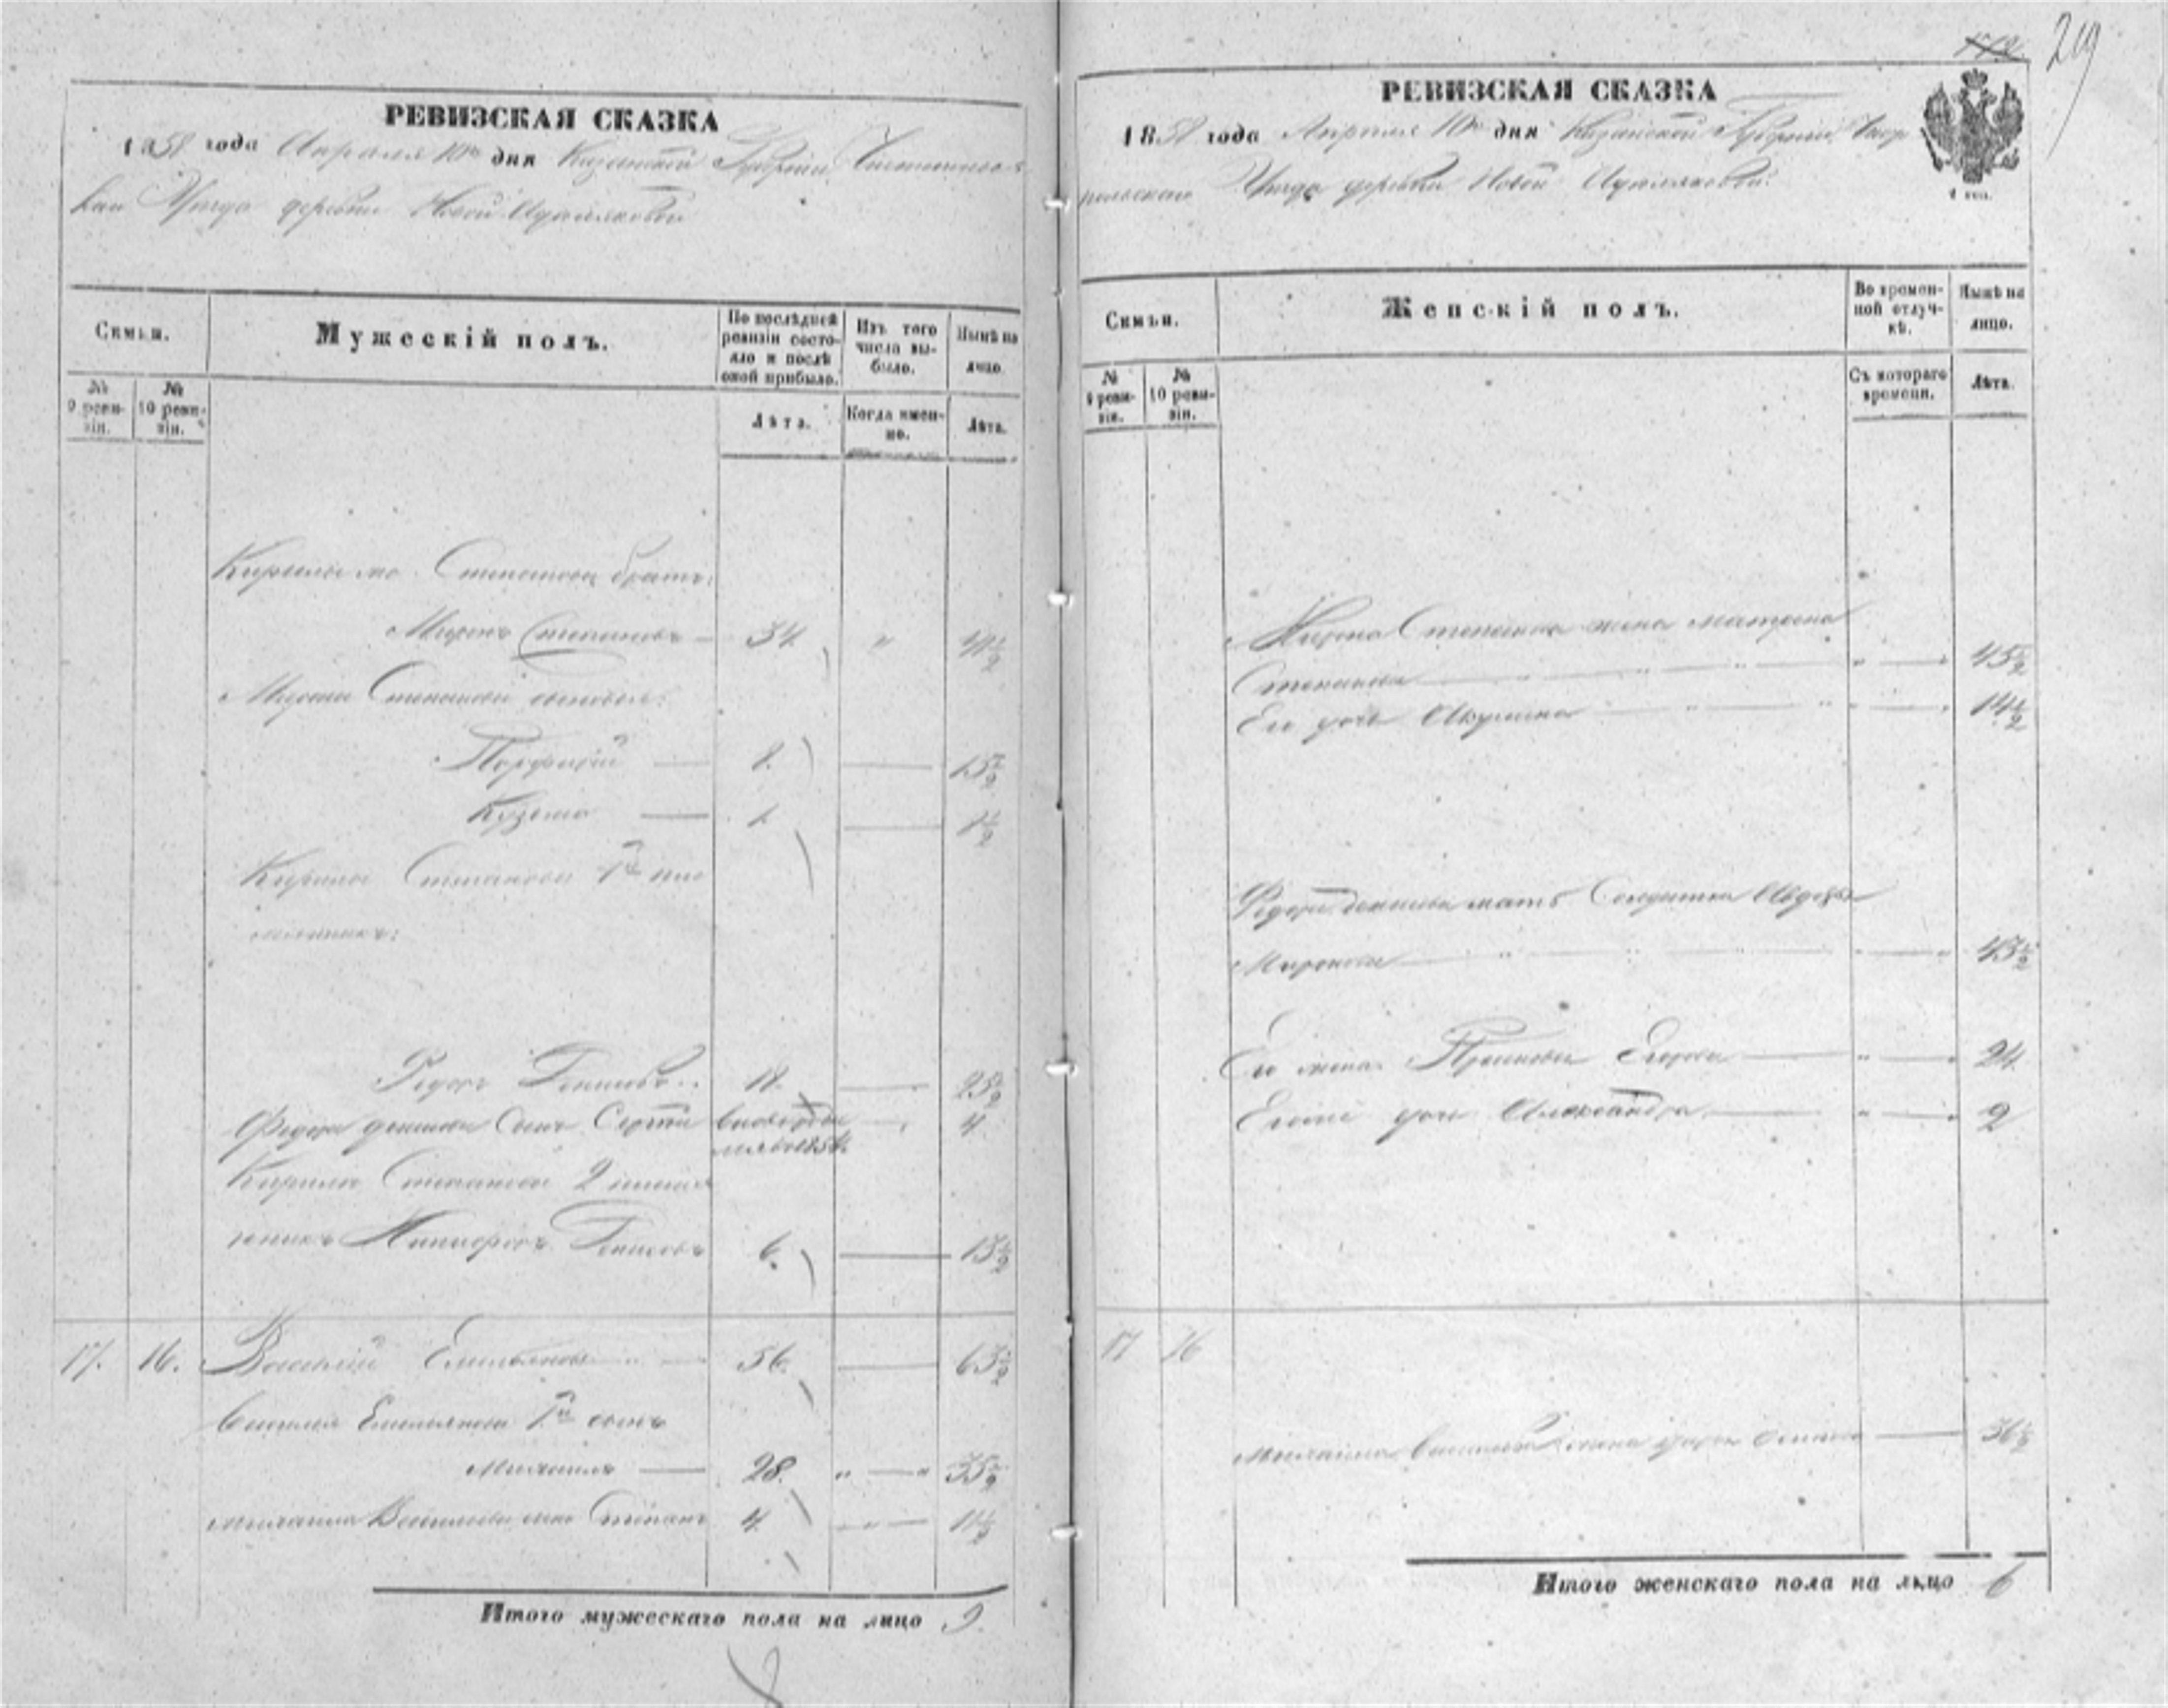 219
РЕВИЗСКАЯ СКАЗКА
1858 года Апреля 10го дня Казанской Губернии Чистополь-
скаго Уезда деревни Новой
Семьи.
Мужескій полъ.
По последней ревизіи состо-яло и после оной прибыло.
Изъ того числа вы-было.
Ныне на лицо.
№ 9 реви-зіи.
№ 10 реви-зіи.
Лѣта.
Когда имен-но.
Лѣта.
Степанова братъ:
Миронъ Степановъ — 34. " 41½
Мирона Степанова сыновья:
Порфирій — 8. — 15½
Кузьма — 1. — 8½
Кирила Степанова 1й пле
мянникъ:
Федоръ Денисовъ 18. — 25½
Федора Денисова сынъ Сергей — 4
1854
Кирила Степанова 2 племян
никъ Никифоръ Денисовъ 6. — 13½
17. 16. Василій Емельяновъ — 56. — 63½
Василія Емельянова 1й сынъ
Михаилъ — 28. "—" 35½
Михаила Васильева сынъ Степанъ 4. —"— 11½
Итого мужескаго пола на лицо 9.
РЕВИЗСКАЯ СКАЗКА
1858 года Апреля 10го дня Казанской Губернии
Уезда деревни Новой
Семьи.
Женскій полъ.
Во времен-ной отлуч-кѣ.
Ныне на лицо.
№ 9 реви-зіи.
№ 10 реви-зіи.
Съ котораго времени.
Лѣта.
Мирона Степанова жена Матрена
Степанова — " — 45½
Его дочь Акулина " — 14½
Федора Денисова мать Солдатка Авдотья
Миронова — " — 43½
Его жена Прасковья Егорова — " — 24
Его дочь Александра — " — 2
17 16
Михаила Васильева жена — 36½
Итого женскаго пола на лицо 6